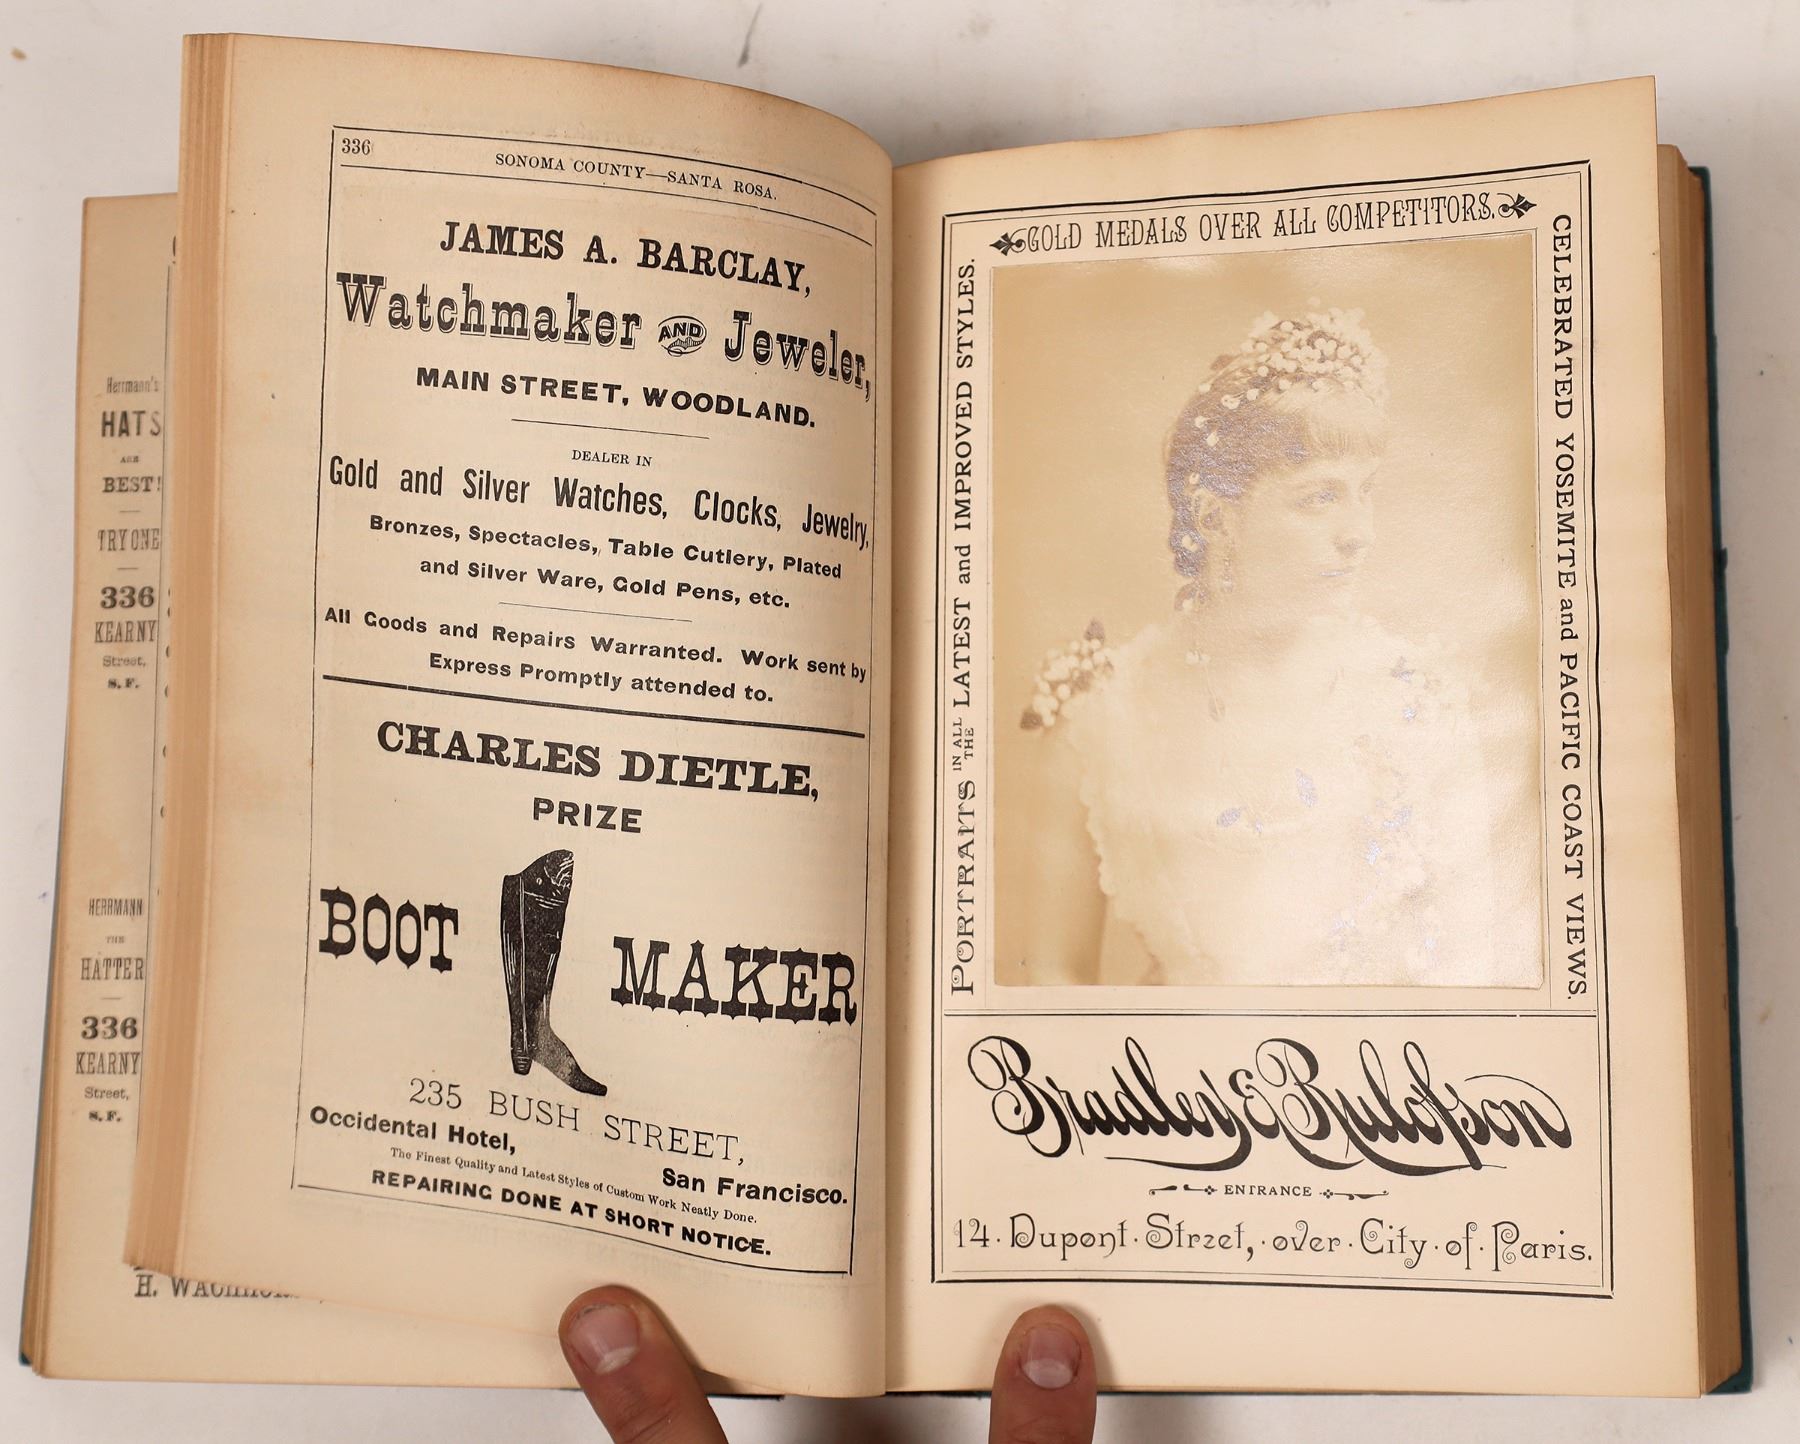 Herrmann's
HATS
ARE
BEST!
TRY ONE
336
KEARNY
Street,
S. F.
HERRMANN
THE
HATTER
336
KEARNY
Street,
S. F.
336
SONOMA COUNTY—SANTA ROSA.
JAMES A. BARCLAY,
Watchmaker AND Jeweler,
MAIN STREET, WOODLAND.
DEALER IN
Gold and Silver Watches, Clocks, Jewelry,
Bronzes, Spectacles, Table Cutlery, Plated
and Silver Ware, Gold Pens, etc.
All Goods and Repairs Warranted. Work sent by
Express Promptly attended to.
CHARLES DIETLE,
PRIZE
BOOT MAKER
235 BUSH STREET,
Occidental Hotel, San Francisco.
The Finest Quality and Latest Styles of Custom Work Neatly Done.
REPAIRING DONE AT SHORT NOTICE.
GOLD MEDALS OVER ALL COMPETITORS.
PORTRAITS IN ALL THE LATEST and IMPROVED STYLES.
CELEBRATED YOSEMITE and PACIFIC COAST VIEWS.
Bradley & Rulofson
ENTRANCE
14. Dupont. Street, · over · City · of · Paris.